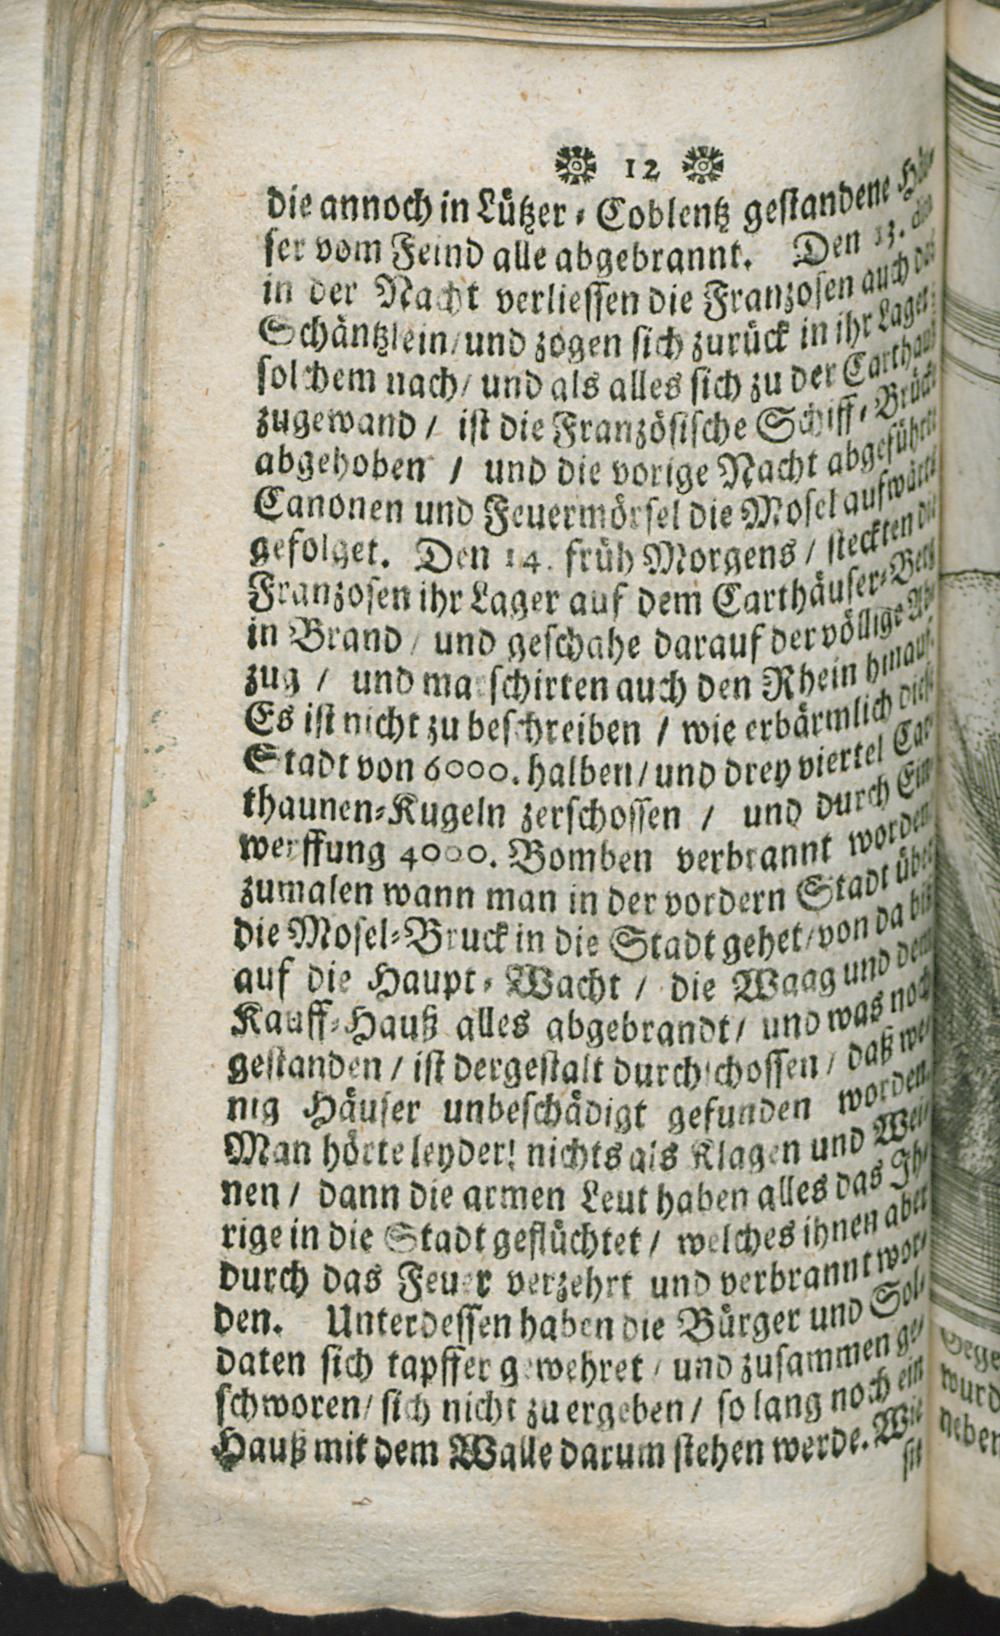 12
die annoch in Lützer-Coblentz gestandene Häu-
ser vom Feind alle abgebrannt. Den 13. dito
in der Nacht verliessen die Franzosen auch das
Schäntzlein/ und zogen sich zurück in ihr Lager:
solchem nach/ und als alles sich zu der Carthauß
zugewand / ist die Französische Schiff-Brück
abgehoben / und die vorige Nacht abgeführte
Canonen und Feuermörsel die Mosel aufwärts
gefolget. Den 14. früh Morgens / steckten die
Franzosen ihr Lager auf dem Carthäuser-Berg
in Brand / und geschahe darauf der völlige Ab-
zug / und marschirten auch den Rhein hinauf.
Es ist nicht zu beschreiben / wie erbärmlich diese
Stadt von 6000. halben/ und drey viertel Car-
thaunen-Kugeln zerschossen / und durch Ein-
werffung 4000. Bomben verbrannt worden
zumalen wann man in der vordern Stadt über
die Mosel-Bruck in die Stadt gehet/ von da biß
auf die Haupt-Wacht / die Waag und dem
Kauff-Hauß alles abgebrandt/ und was noch
gestanden / ist dergestalt durchschossen / daß we-
nig Häuser unbeschädigt gefunden worden.
Man hörte leyder! nichts als Klagen und Wei-
nen / dann die armen Leut haben alles das Ih-
rige in die Stadt geflüchtet / welches ihnen aber
durch das Feuer verzehrt und verbrannt wor-
den. Unterdessen haben die Bürger und Sol-
daten sich tapffer gewehret / und zusammen ge-
schworen/ sich nicht zu ergeben/ so lang noch ein
Hauß mit dem Walle darum stehen werde. Wie
sie
wurd
neben